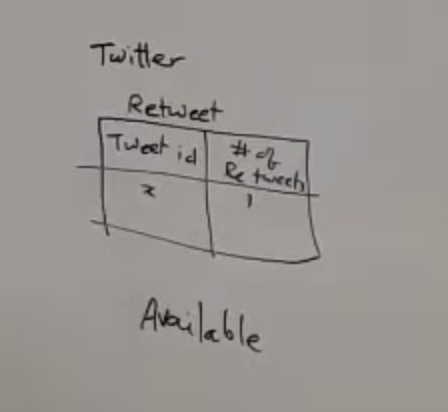 Twitter
Retweet
Tweet id # of Retweets
x 1
Available